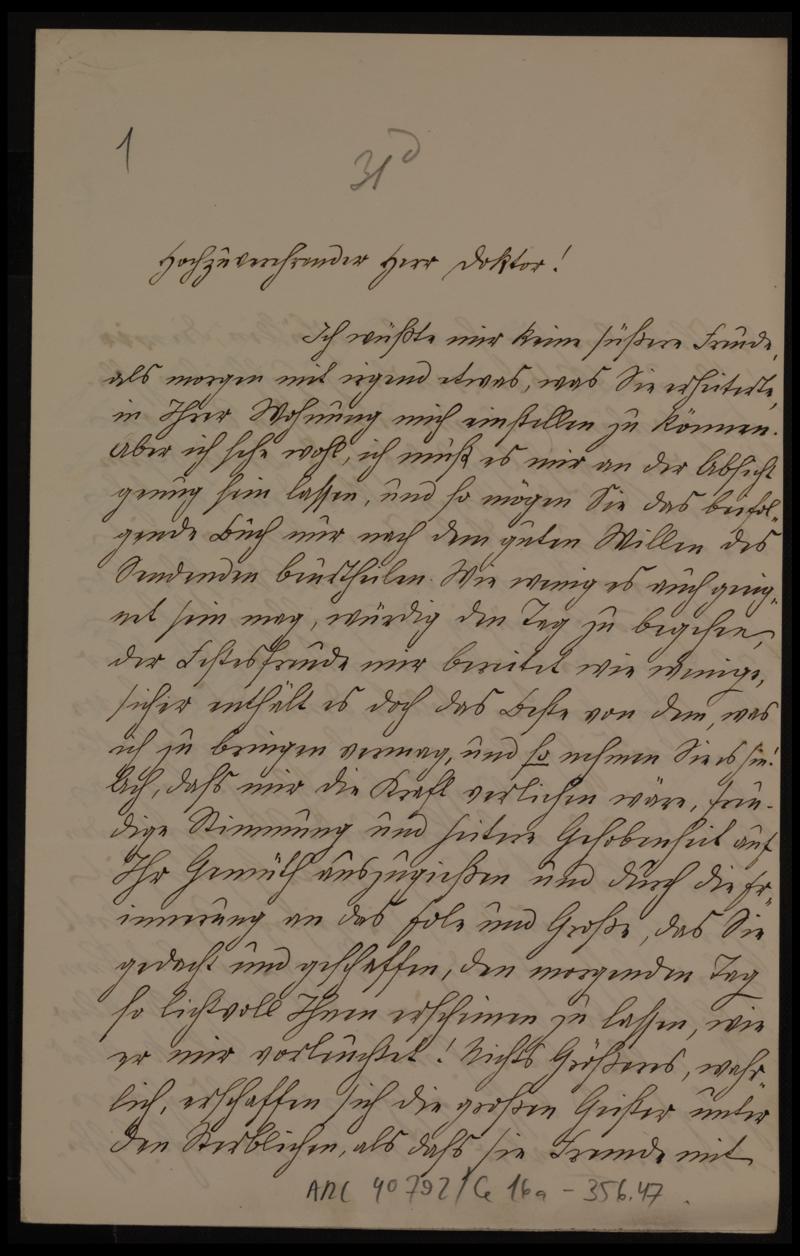 1
31d
Hochzuverehrender Herr Doktor!
Ich wüßte mir keine süßere Freude,
als morgen mit irgend etwas, was Sie erheiterte,
in Ihrer Wohnung mich einstellen zu können.
Aber ich sehe wohl, ich muß es mir an der Absicht
genug sein lassen, und so mögen Sie das beifol-
gende Buch nur nach dem guten Willen des
Sendenden beurtheilen. Wie wenig es auch geeig-
net sein mag, würdig den Tag zu begehen,
der Festesfreude mir bereitet wie wenige,
sicher enthält es doch das Beste von dem, was
ich zu bringen vermag, und so nehmen Sie es hin!
Ach, daß mir die Kraft verliehen wäre, freu-
dige Stimmung und heitere Gehobenheit auf
Ihr Gemüth auszugießen und durch die Er-
innerung an das Edle und Große, das Sie
gedacht und geschaffen, den morgenden Tag
so lichtvoll Ihnen erscheinen zu lassen, wie
er mir vorleuchtet! Nichts Größeres, wahr-
lich, erschaffen sich die großen Geister unter
den Sterblichen, als daß sie Fremde mit
ANC 40792/Ce 16a - 356.47.